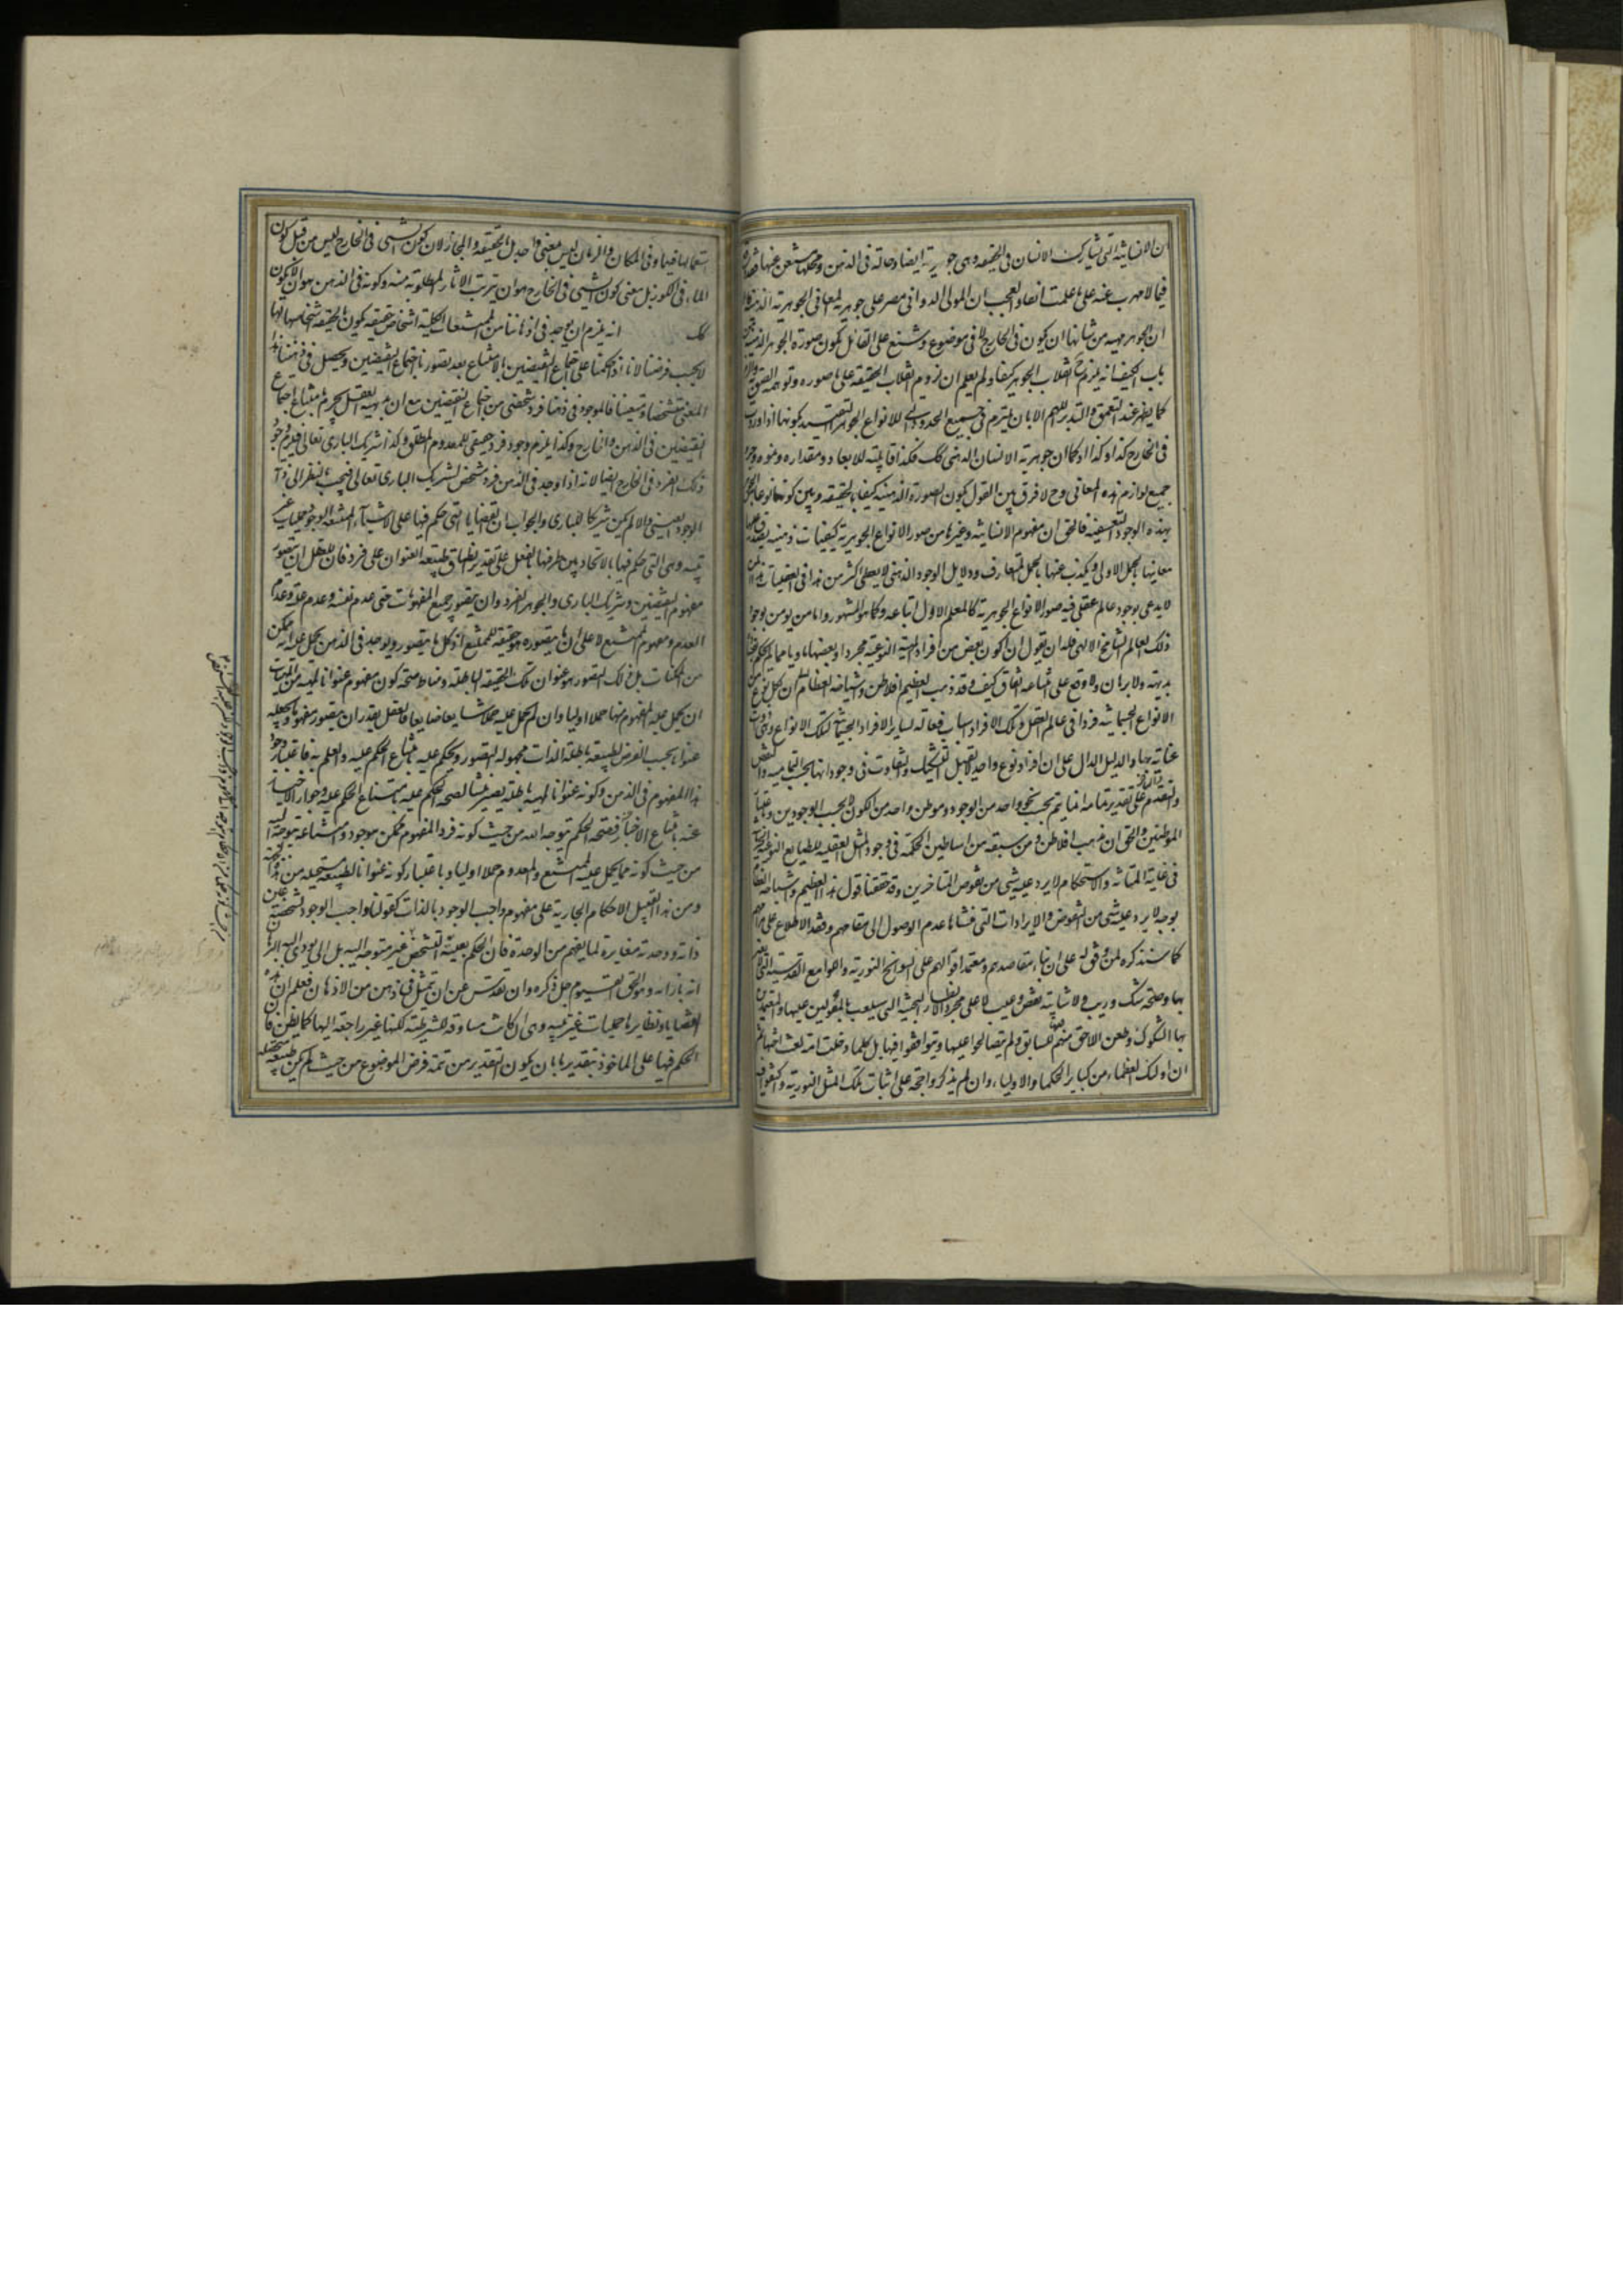 ان الانسانية التى تشارك الانسان فى الحقيقة وهى جوهرية ايضا وحالة فى الذهن ومحلها مستغن عنها
فيما لا مهرب عنه على ما علمت انفا والعجب ان المولى الدوانى مصر على جوهرية المعانى الجوهرية الذهنية
ان الجوهر مهية من شانها ان يكون فى الخارج لا فى موضوع وشنع على القائل بكون صورة الجوهر الذهنية من
باب الكيف انه يلزم ح انقلاب الجوهر كيفا ولم يعلم ان لزوم انقلاب الحقيقة على ما صوره وتوهمه الصق
كما يظهر عند التعمق والتدبر اللهم الا بان يلتزم فى جميع الحدود التى للانواع الجوهر التقييد بكونها اذا وجدت
فى الخارج كذا وكذا او كما ان جوهرية الانسان الذهنى كك فكذا قابليته للابعاد ومقداره ونموه
جميع لوازم هذه المعانى وح لا فرق بين القول بكون الصورة الذهنية كيفا بالحقيقة وبين كونها نوعا من الجوهر
بهذه الوجوه التعسفية فالحق ان مفهوم الانسانية وغيرها من صور الانواع الجوهرية كيفيات ذهنية يصدق عليها
معانيها بالحمل الاولى ويكذب عنها بالحمل المتعارف ودلايل الوجود الذهنى لا يعطى اكثر من هذا فى العقليات
لا يدعى بوجود عالم عقلى فيه صور الانواع الجوهرية كالمعلم الاول اتباعه كما هو المشهور واما من يؤمن بوجود
ذلك العالم الشامخ الالهى فله ان يقول ان كون بعض من افراد المهية النوعية مجردا وبعضها ماديا مما لم يحكم بفساده
بديهة ولا برهان ولا وقع على امتناعه اتفاق كيف وقد ذهب العظيم افلاطن واشياخه العظام الى ان لكل نوع من
الانواع الجسمانية فردا فى عالم العقل وتلك الافراد اسباب فعالة لساير الافراد الجسمانية لتلك الانواع وهى ذوات
عناية بها والدليل الدال على ان افراد نوع واحد لا يقبل التشكيك والتفاوت فى وجوداتها بحسب التمامية والنقص
والتقدم والتاخر على تقدير تمامه انما يتم بحسب نحو واحد من الوجود وموطن واحد من الكون لا بحسب الوجودين
الموطنين والحق ان مذهب افلاطن ومن سبقه من اساطين الحكمة فى وجود المثل العقلية للطبايع النوعية الجسمانية
فى غاية المتانة والاستحكام لا يرد عليه شى من نقوض المتاخرين وقد حققنا قول هذا العظيم واشياخه العظام
بوجه لا يرد عليه شى من النقوض والايرادات التى منشاها عدم الوصول الى مقامهم وفقد الاطلاع على مرامهم
كما سنذكره لمن وفق له على ان بناء مقاصدهم ومعتمد اقوالهم على السوانح النورية واللوامع القدسية التى
بها وصمة شك وريب ولا شايبة نقص وعيب لا على مجرد الانظار البحثية التى سيلعب بالمعولين عليها والمعتمدين
بها الشكوك وطعن اللاحق منهم للسابق ولم يتصالحوا عليها ويتوافقوا فيها بل كلما دخلت امة لعنت اختها
ان اولئك العظماء من كبار الحكماء والاولياء وان لم يذكروا حجة على اثبات تلك المثل النورية واكتفوا
استعمالها فيها وفى المكان والزمان ليس معنى واحد بل بالحقيقة والمجاز لان كون الشى فى الخارج ليس من قبيل كون
الماء فى الكوز بل معنى كون الشى فى الخارج هو ان يترتب الاثار المطلوبة منه وكونه فى الذهن هو ان لا يكون
كك انه يلزم ان يوجد فى اذهاننا من الممتنعات الكلية اشخاص حقيقية يكون بالحقيقة اشخاصها لها
لا بحسب فرضنا لانا اذا حكمنا على اجتماع النقيضين بالامتناع بعد تصورنا اجتماع النقيضين ويحصل فى ذهننا هذا
المعنى متشخصا ومتعينا فالموجود فى ذهننا فرد شخصى من اجتماع النقيضين مع ان بديهة العقل يجزم بامتناع اجتماع
النقيضين فى الذهن والخارج وكذا يلزم وجود فرد حقيقى للمعدوم المطلق وكذا شريك البارى تعالى فيلزم وجود
ذلك الفرد فى الخارج ايضا لانه اذا وجد فى الذهن فرد مشخص لشريك البارى تعالى فيجب بالنظر الى ذاته
الوجود العينى والا لم يكن شريكا للبارى والجواب ان القضايا التى حكم فيها على الاشياء الممتنعة الوجود حمليات غير
بتية وهى التى حكم فيها بالاتحاد بين طرفيها بالفعل على تقدير انطباق طبيعة العنوان على فرد فان للعقل ان يتصور
مفهوم النقيضين وشريك البارى والجوهر الفرد وان يتصور جميع المفهومات حتى عدم نفسه وعدم علته وعدم
العدم ومفهوم الممتنع لا على ان ما يتصوره هو حقيقة الممتنع اذ كل ما يتصور ويوجد فى الذهن يحمل عليه انه ممكن
من الممكنات بل ذلك المتصور هو عنوان لتلك الحقيقة الباطلة ومناط صحة كون مفهوم عنوانا لمهية من المهيات
ان يحمل عليه المفهوم منها حملا اوليا وان لم يحمل عليه حملا شايعا صناعيا فالعقل يقدر ان يتصور مفهوما ويجعله
عنوانا بحسب الفرض لطبيعة باطلة الذات مجهولة التصور ويحكم عليه بامتناع الحكم عليه والعلم به فباعتبار وجود
هذا المفهوم فى الذهن وكونه عنوانا لمهية باطلة يصير منشا لصحة الحكم عليه بامتناع الحكم عليه وجواز الاخبار
عنه بامتناع الاخبار فصحة الحكم يتوجه اليه من حيث كونه فرد المفهوم ممكن موجود وامتناعه يتوجه اليه
من حيث كونه مما يحمل عليه الممتنع والمعدوم حملا اوليا وباعتبار كونه عنوانا لطبيعة مستحيلة
ومن هذا القبيل الاحكام الجارية على مفهوم واجب الوجود بالذات كقولنا واجب الوجود تشخصه عين
ذاته ووحدته مغايرة لما يفهم من الوحدة فان الحكم بعينية التشخص غير متوجه اليه بل الى ما يودى اليه البرهان
انه بازائه وهو الحق القيوم جل ذكره وان تقدس عن ان يتمثل فى ذهن من الاذهان فعلم ان هذه
القضايا ونظايرها حمليات غير بتية وهى وان كانت مساوقة للشرطية لكنها غير راجعة اليها كما يظن فان
الحكم فيها على الماخوذ بتقدير ما بان يكون التقدير من تتمة فرض الموضوع من حيث لم يكن طبيعة محصلة